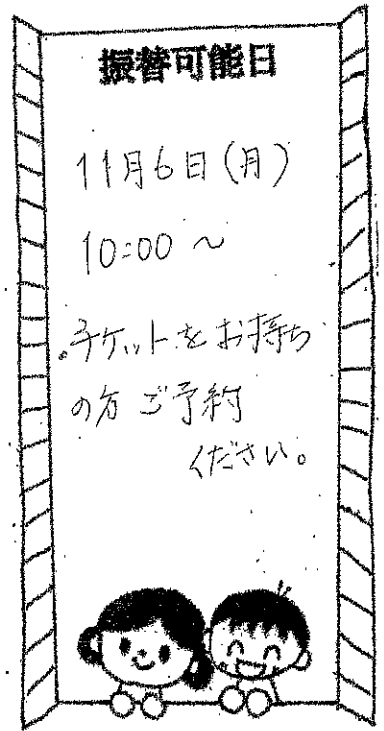 振替可能日
11月6日(月)
10:00 ~
チケットをお持ち
の方 ご予約
ください。